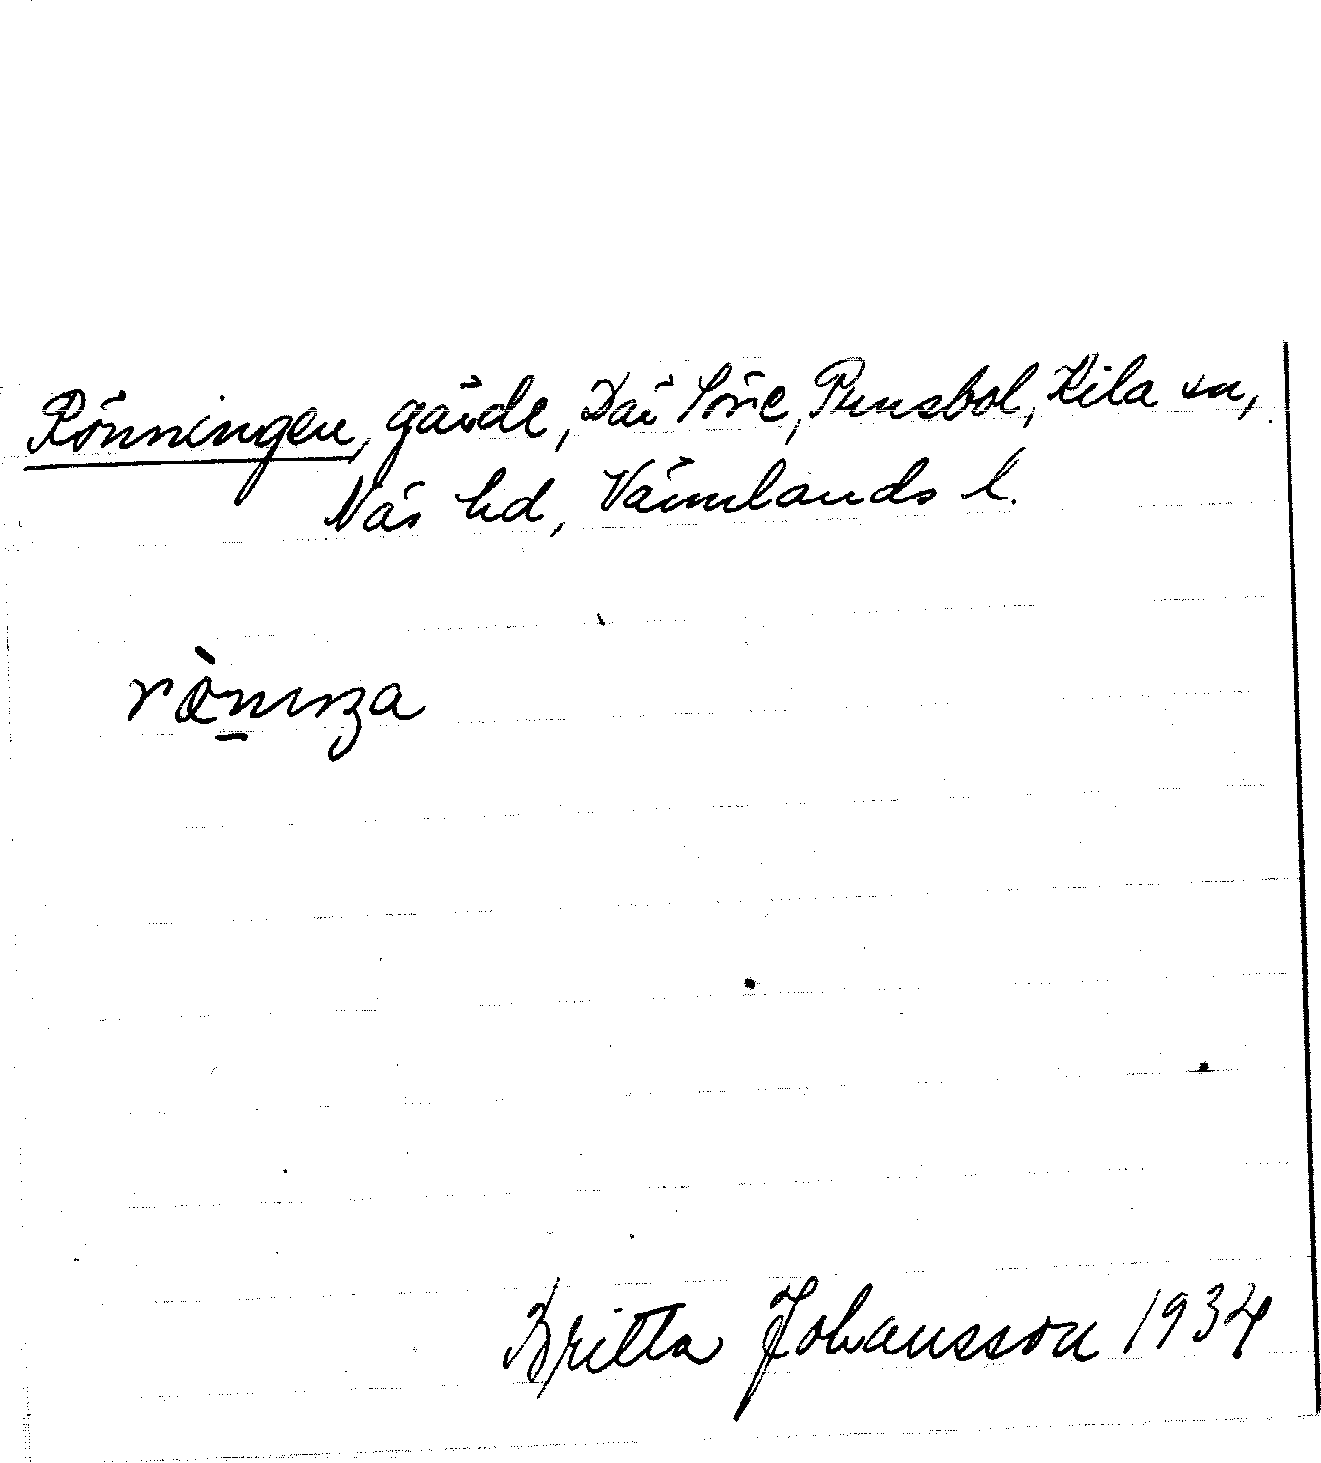 Rönningen, gärde, Där Söre, Prusbol, Kila sn,
Näs hd, Värmlands l.
Britta Johansson 1934